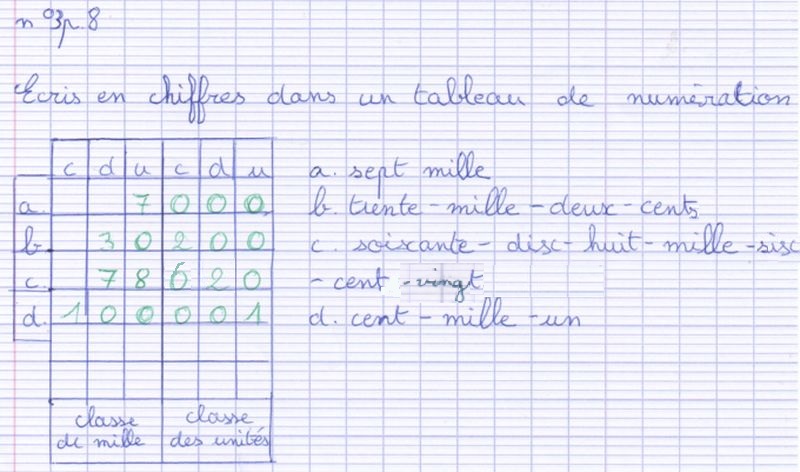 n°3p.8
Ecris en chiffres dans un tableau de numération
c d u c d u
a. 7 0 0 0
b. 3 0 2 0 0
c. 7 8 6 2 0
d. 1 0 0 0 0 1
classe de mille
classe des unités
a. sept mille
b. trente-mille-deux-cents
c. soixante-disc-huit-mille-sisc
-cent-vingt
d. cent-mille-un